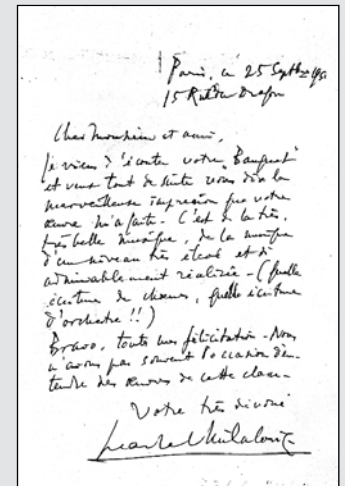 Paris, ce 25 Septbre
15 Rue du Dragon
Cher Monsieur et ami,
Je viens d'écouter votre Banquet
et veux tout de suite vous dire la
merveilleuse impression que votre
œuvre m'a faite - C'est de la très,
très belle musique, de la musique
d'un niveau très élevé et si
admirablement réalisée - (quelle
écriture de chœurs, quelle écriture
d'orchestre !!)
Bravo, toutes mes félicitations - Nous
n'avons pas souvent l'occasion d'en-
tendre des œuvres de cette classe -
Votre très dévoué